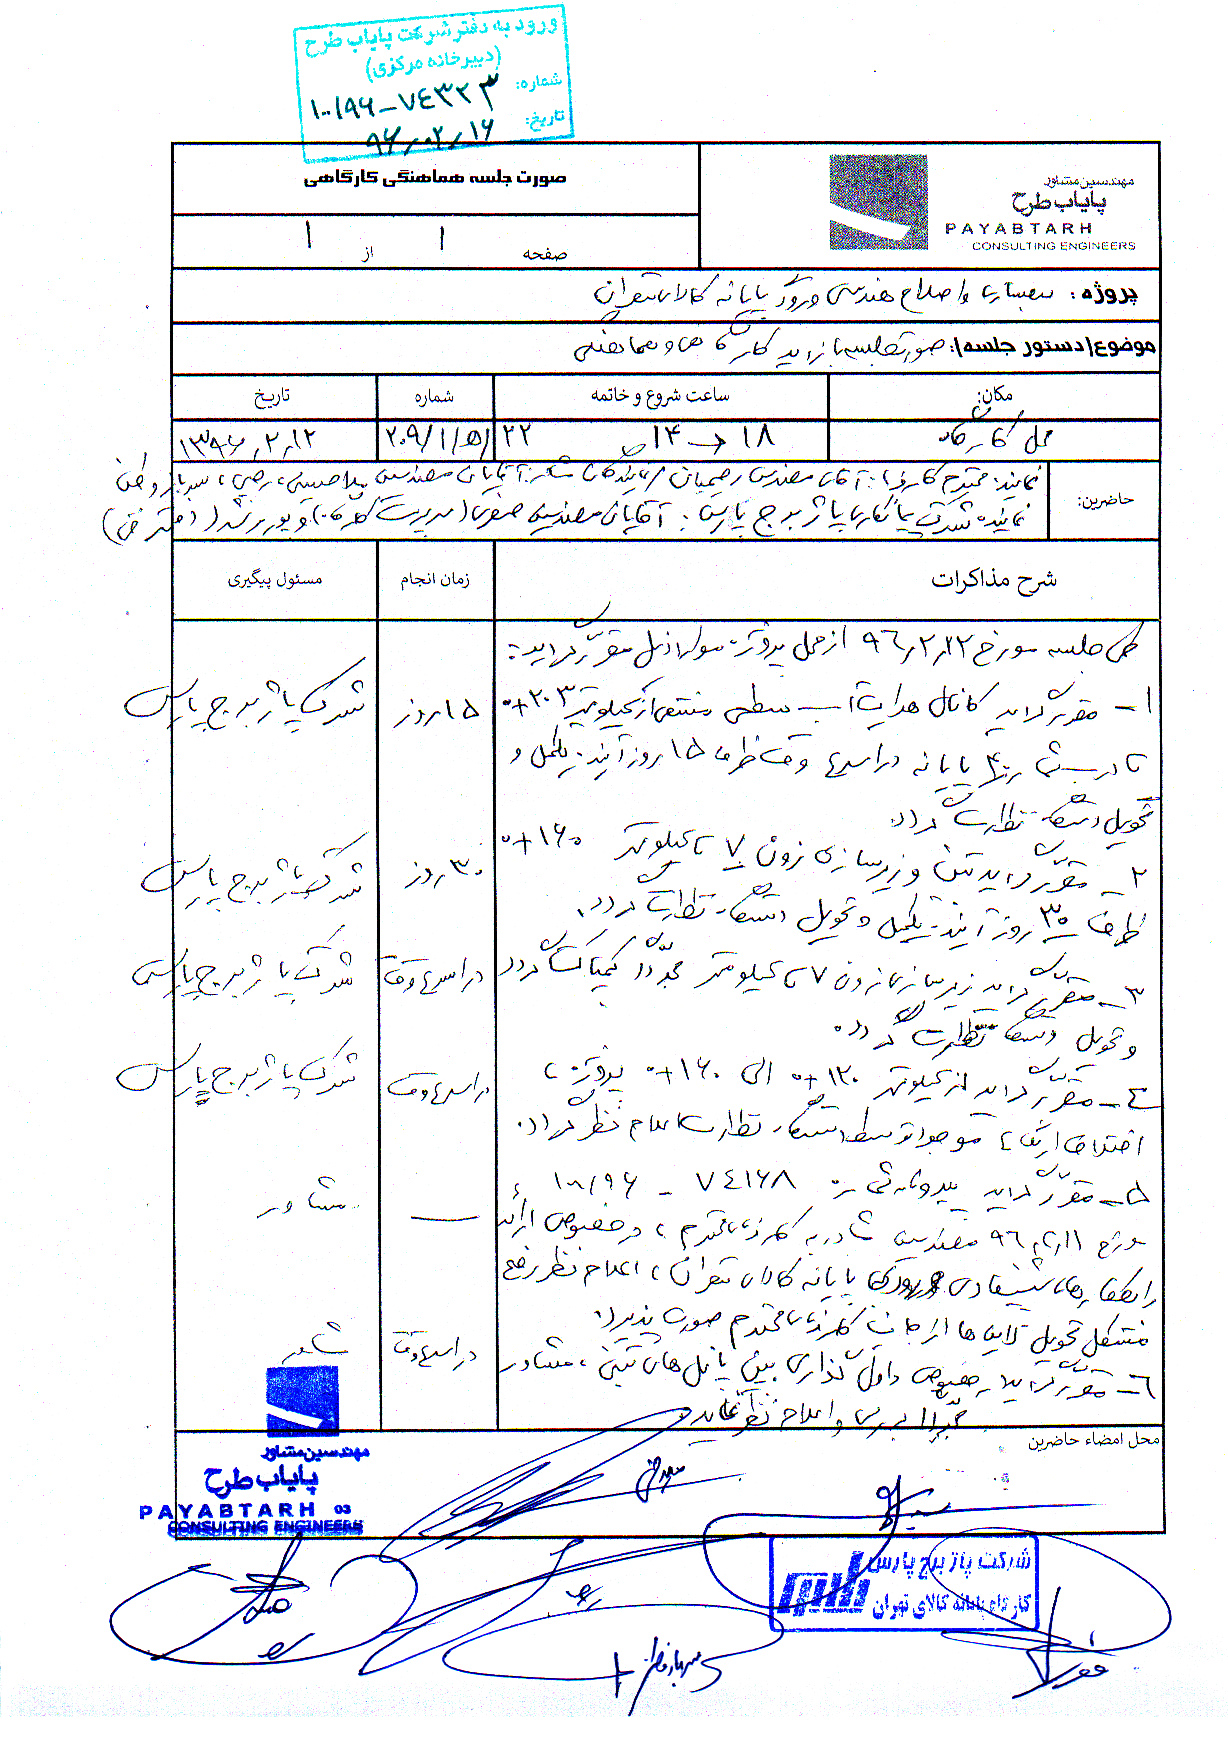 ورود به دفتر شرکت پایاب طرح
(دبیرخانه مرکزی)
شماره: ۱۰۰/۹۶-۷۴۳۲۳
تاریخ: ۹۶/۰۲/۱۶
مهندسین مشاور
پایاب طرح
PAYABTARH
CONSULTING ENGINEERS
صورت جلسه هماهنگی کارگاهی
صفحه ۱ از ۱
پروژه: بهسازی و اصلاح هندسی ورودی پایانه کالای تهران
موضوع/دستور جلسه: صورتجلسه بازدید کارگاهی و هماهنگی
مکان: ساعت شروع و خاتمه شماره تاریخ
محل کارگاه ۱۸ → ۱۴ ۲۰۹/۱/ه/۲۲ ۱۳۹۶/۲/۱۲
حاضرین: نماینده محترم کارفرما: آقای مهندس رحیمیان / نمایندگان مشاور: آقایان مهندس رجبی، سرباز وطن
نماینده شرکت پیمانکاری پاژ برج پارس: آقایان مهندس صفری (مدیریت کارگاه) و پورمرشد (دفتر فنی)
شرح مذاکرات زمان انجام مسئول پیگیری
طی جلسه مورخ ۹۶/۲/۱۲ از محل پروژه موارد ذیل مقرر گردید:
۱- مقرر گردید کانال هدایت آب سطحی منتهی از کیلومتر ۰+۲۰۳ ۱۵ روز شرکت پاژ برج پارس
تا درب پایانه در اسرع وقت ظرف ۱۵ روز آینده تکمیل و
تحویل دستگاه نظارت گردد.
۲- مقرر گردید بتن و زیرسازی زون ۷ تا کیلومتر ۰+۱۶۰ ۳۰ روز شرکت پاژ برج پارس
ظرف ۳۰ روز آینده تکمیل و تحویل دستگاه نظارت گردد.
۳- مقرر گردید زیرسازی زون ۷ تا کیلومتر مجدداً گردد در اسرع وقت شرکت پاژ برج پارس
و تحویل دستگاه نظارت گردد.
۴- مقرر گردید از کیلومتر ۰+۱۲۰ الی ۰+۱۶۰ پروژه، در اسرع وقت شرکت پاژ برج پارس
اختلاف ارتفاع موجود توسط دستگاه نظارت اعلام نظر گردد.
۵- مقرر گردید پیرو نامه ۷۴۱۶۸-۱۰۰/۹۶ — مشاور
مورخ ۹۶/۲/۱۱ مهندسین مشاور به کارفرمای محترم، در خصوص ارائه
راهکارهای پیشنهادی ورودی پایانه کالای تهران، اعلام نظر رفع
مشکل تحویل لاین ها از جانب کارفرمای محترم صورت پذیرد.
۶- مقرر گردید در خصوص داول گذاری بین پانل های بتنی، مشاور در اسرع وقت مشاور
بررسی و اعلام نظر نماید
محل امضاء حاضرین
مهندسین مشاور
پایاب طرح
PAYABTARH 03
CONSULTING ENGINEERS
شرکت پاژ برج پارس
کارگاه پایانه کالای تهران
سرباز وطن